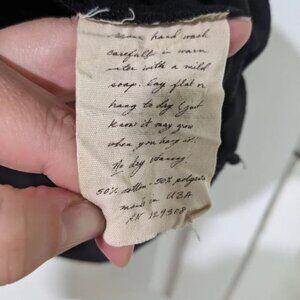 please hand wash
carefully in warm
water with a mild
soap. Lay flat or
hang to dry (just
know it may grow
when you hang it.
No dry cleaning
50% cotton - 50% polyester
made in USA
RN 129308